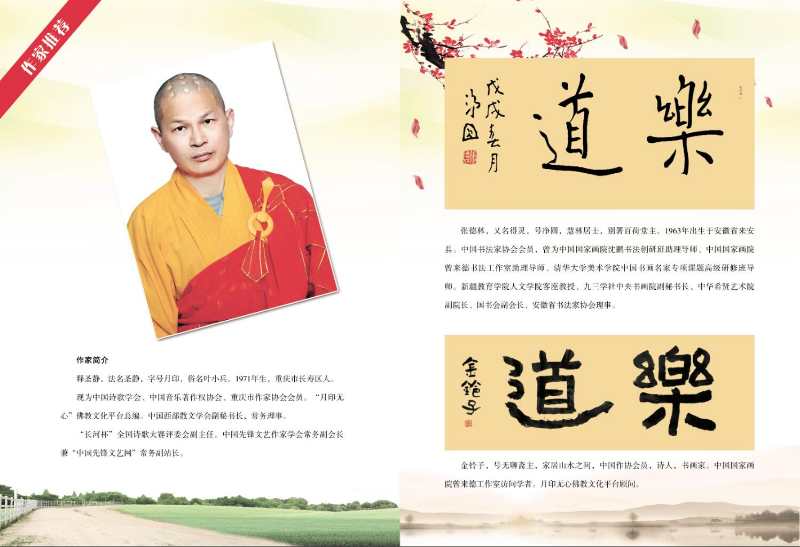 作家推荐
作家简介
释圣静，法名圣静，字号月印，俗名叶小兵。1971年生，重庆市长寿区人。
现为中国诗歌学会、中国音乐著作权协会、重庆市作家协会会员。“月印无
心”佛教文化平台总编。中国西部散文学会副秘书长、常务理事。
“长河杯”全国诗歌大赛评委会副主任。中国先锋文艺作家学会常务副会长
兼“中国先锋文艺网”常务副站长。
樂道
戊戌春月
张德林，又名得灵，号净圆，慧林居士，别署百荷堂主。1963年出生于安徽省来安
县。中国书法家协会会员，曾为中国国家画院沈鹏书法创研班助理导师、中国国家画院
曾来德书法工作室助理导师、清华大学美术学院中国书画名家专项课题高级研修班导
师。新疆教育学院人文学院客座教授、九三学社中央书画院副秘书长、中华希贤艺术院
副院长、国书会副会长、安徽省书法家协会理事。
樂道
金铃子
金铃子，号无聊斋主，家居山水之间，中国作协会员，诗人，书画家。中国国家画
院曾来德工作室访问学者。月印无心佛教文化平台顾问。